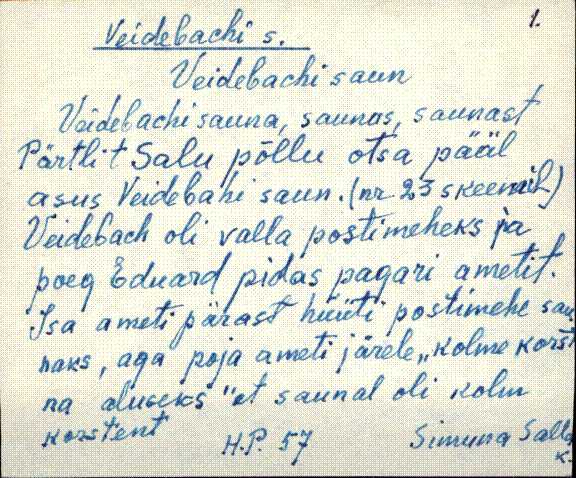 1.
Veidebachi s.
Veidebachi saun
Veidebachi sauna, saunas, saunast
Pärtlit Salu põllu otsa pääl
asus Veidebahi saun. (nr 23 skeemil)
Veidebach oli valla postimeheks ja
poeg Eduard pidas pagari ametit.
Isa ameti pärast hüüti postimehe sau
naks, aga poja ameti järele „kolme korst
na aluseks" et saunal oli kolm
korstent
H.P. 57
Simuna Salla
k.